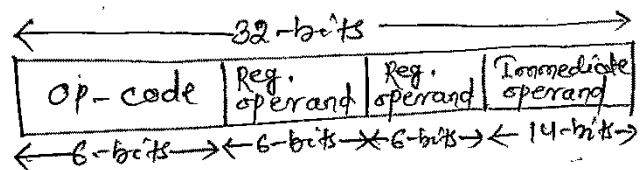 32-bits
Op-code Reg. operand Reg. operand Immediate operand
6-bits 6-bits 6-bits 14-bits